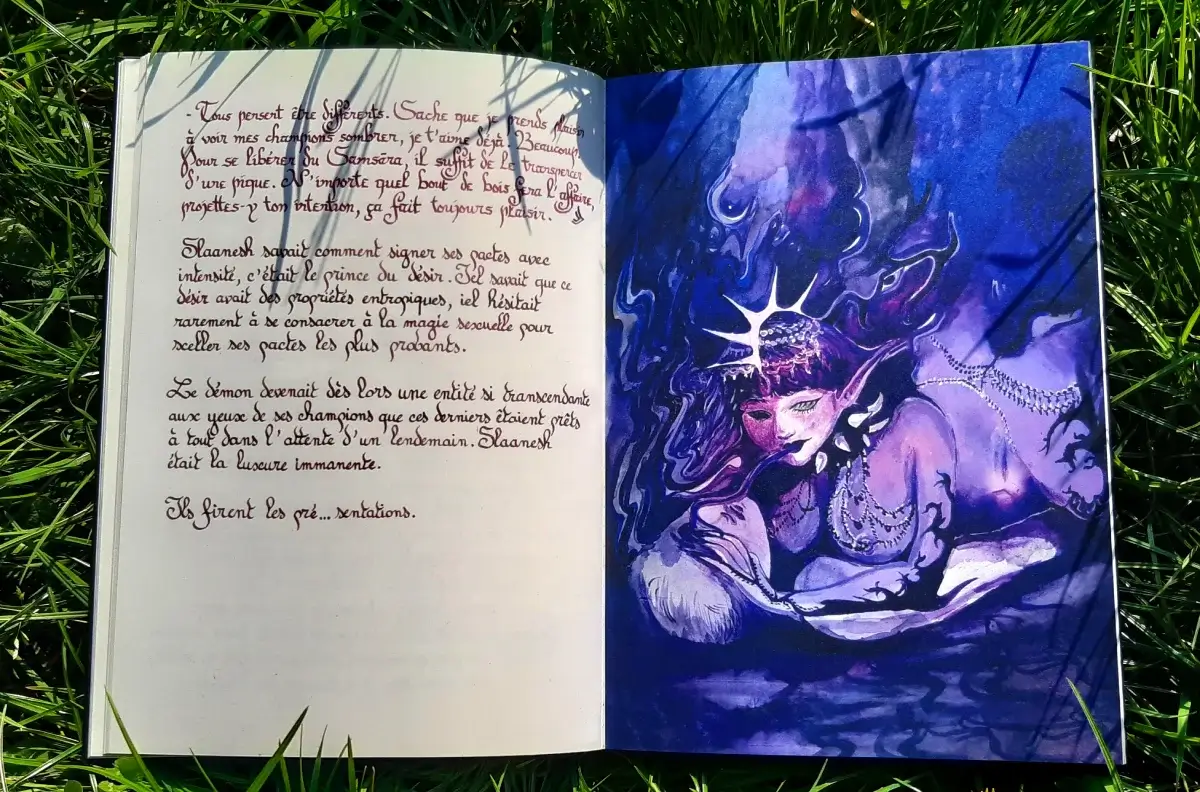 - Tous pensent être différents. Sache que je prends plaisir
à voir mes champions sombrer, je t'aime déjà! Beaucoup.
Pour se libérer du Samsāra, il suffit de le transpercer
d'une pique. N'importe quel bout de bois fera l'affaire,
projettes-y ton intention, ça fait toujours plaisir.
Slaanesh savait comment signer ses pactes avec
intensité, c'était le prince du désir. Iel savait que ce
désir avait des propriétés entropiques, iel hésitait
rarement à se consacrer à la magie sexuelle pour
sceller ses pactes les plus probants.
Le démon devenait dès lors une entité si transcendante
aux yeux de ses champions que ces derniers étaient prêts
à tout dans l'attente d'un lendemain. Slaanesh
était la luxure immanente.
Ils firent les pré... sentations.